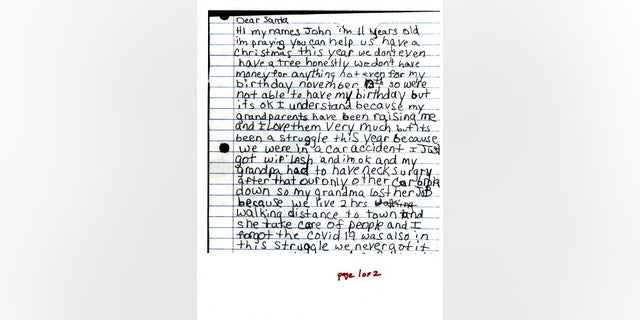 Dear Santa
Hi my names John i'm 11 years old
i'm praying you can help us have a
christmas this year we don't even
have a tree honestly we don't have
money for anything not even for my
birthday november so were
not able to have my birthday but
its ok I understand because my
grandparents have been raising me
and I love them very much but its
been a struggle this year because
we were in a car accident I Just
got wip lash and im ok and my
grandpa had to have neck surgry
after that our only other car
down so my grandma lost her Job
because we live 2 hrs
walking distance to town and
she take care of people and I
forgot the covid 19 was also in
this struggle we never got it
page 1 of 2